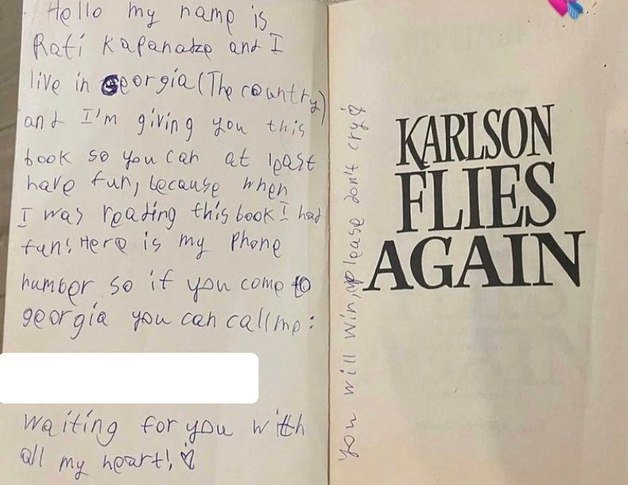 Hello my name is
Rati Kapanadze and I
live in Georgia (The country)
and I'm giving you this
book so you can at least
have fun, because when
I was reading this book I had
fun! Here is my phone
number so if you come to
georgia you can call me:
waiting for you with
all my heart!
you will win, please don't cry!
KARLSON
FLIES
AGAIN